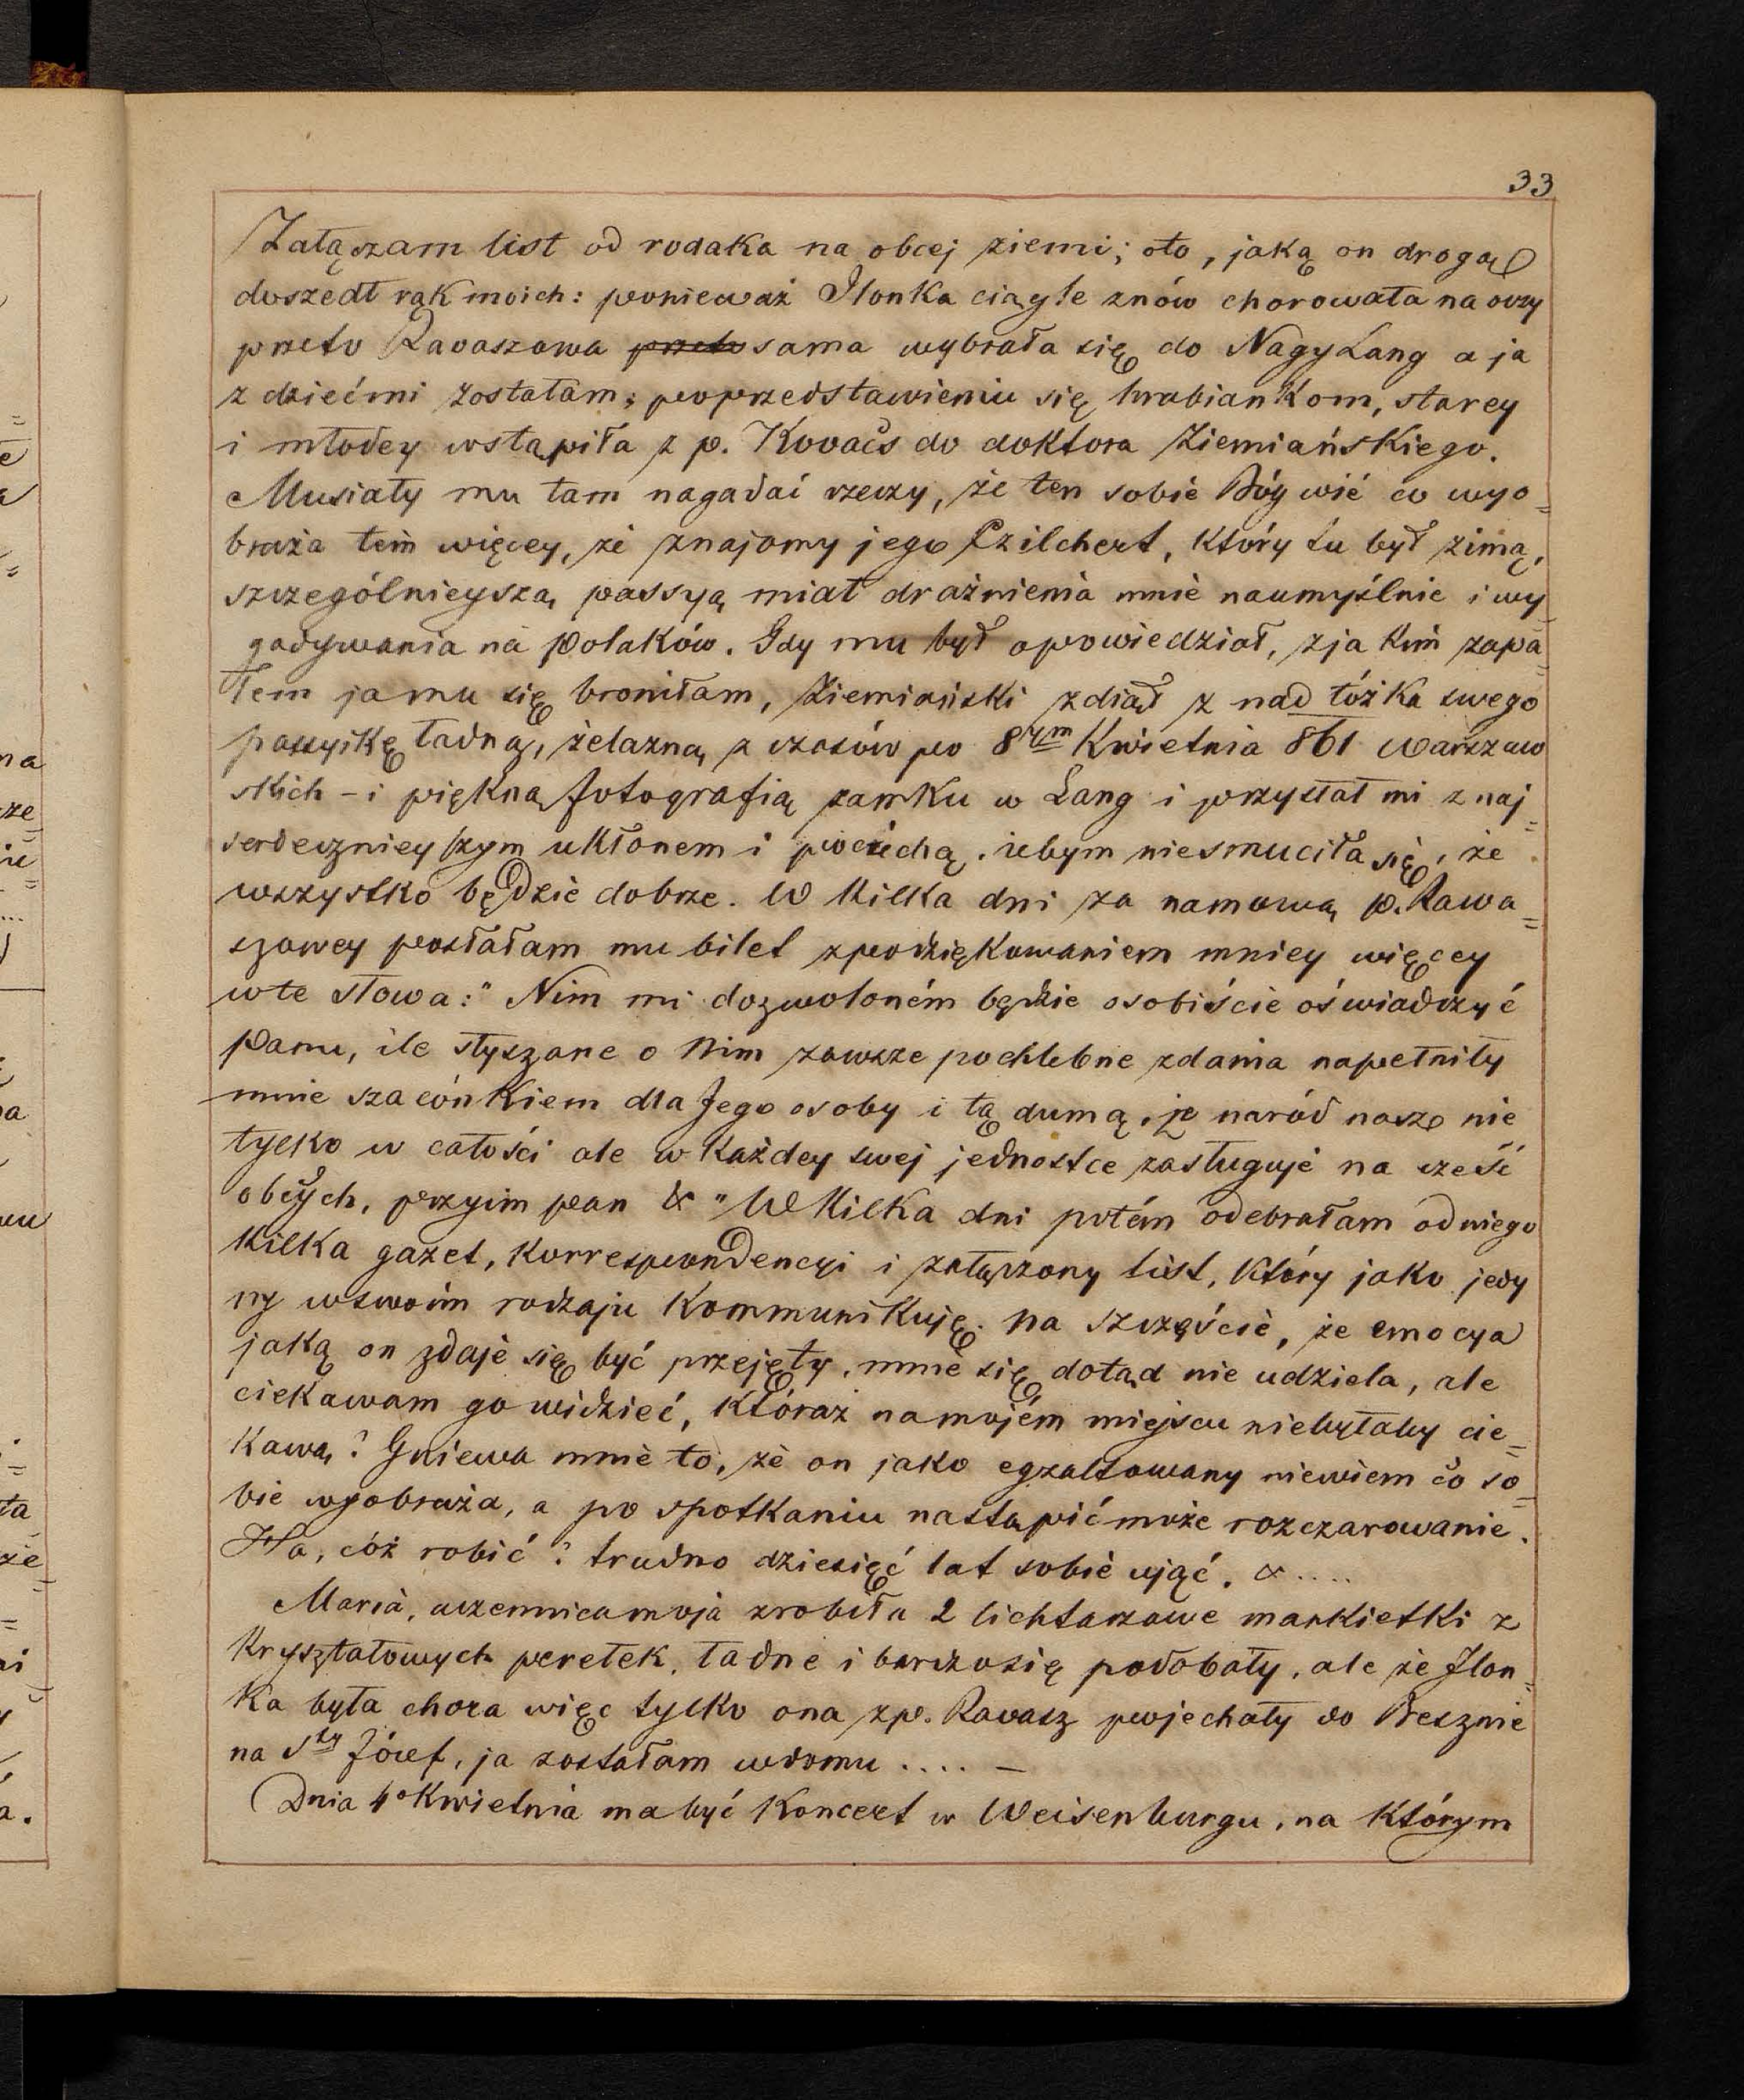 33
Załączam list od rodaka na obcej ziemi; oto, jaką on drogą
doszedł rąk moich: ponieważ Ilonka ciągle znów chorowała na oczy
przeto Ravaszowa przeto sama wybrała się do Nagy Lang a ja
z dziećmi zostałam; po przedstawieniu się hrabiankom, starey
i młodey wstąpiła z p. Kovacs do doktora Ziemiańskiego.
Musiały mu tam nagadać rzeczy, że ten sobie Bóg wié co wyo=
braża tem więcey, że znajomy jego Czilchert, który tu był zimą,
szczególnieyszą passyą miał drażnienia mnie naumyślnie i wy
gadywania na Polaków. Gdy mu był opowiedział, z jakim zapa=
łem ja mu się broniłam, Ziemiański zdiął z nad łóżka swego
passyikę ładną, żelazną z czasów po 8ym Kwietnia 861 warszaw
skich – i piękną fotografią zamku w Lang i przysłał mi z naj=
serdeczniejszym ukłonem i pociechą, żebym niesmuciła się, że
wszystko będzie dobrze. W kilka dni za namową p. Rawa=
szowey posłałam mu bilet z podziękowaniem mniey więcey
w te słowa: " Nim mi dozwoloném będzie osobiście oświadczyć
Panu, ile słyszane o Nim zawsze pochlebne zdania napełniły
mnie szacónkiem dla Jego osoby i tą dumą, że naród nasz nie
tylko w całości ale w każdey swej jednostce zasługuje na cześć
obcych, przyim pan & " W kilka dni potém odebrałam od niego
kilka gazet, korrespondencyi i załączony list, który jako jedy
ny w swoim rodzaju kommunikuję. Na szczęście, że emocya
jaką on zdaje się być przejęty, mnie się dotąd nie udziela, ale
ciekawam go widzieć, któraż na mojém miejscu niebyłaby cie=
kawą? Gniewa mnie to, że on jako egzaltowany niewiem co so=
bie wyobraża, a po spotkaniu nastąpić może rozczarowanie.
Ha, cóż robić? trudno dziesięć lat sobie ująć. & ....
Maria, uczennica moja zrobiła 2 lichtarzowe mankietki z
kryształowych perełek, ładne i bardzo się podobały, ale że Ilon=
ka była chora więc tylko ona z p. Ravasz pojechały do Besznie
na Sty Józef, ja zostałam w domu .... –
Dnia 4o Kwietnia ma być Koncert w Weisenburgu, na którym